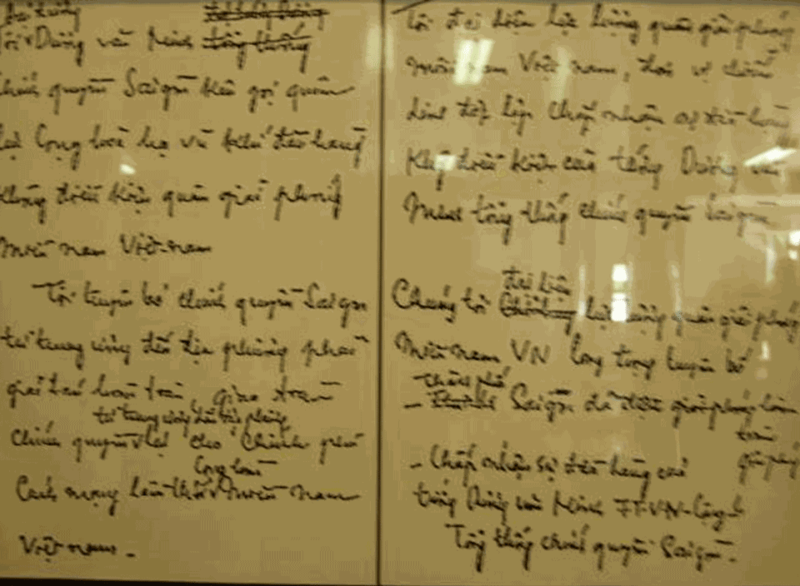 Đại tướng
Tôi Dương văn Minh tổng thống
chính quyền Saigon kêu gọi quân
lực Cộng hoà hạ vũ khí đầu hàng
không điều kiện quân giải phóng
miền nam Việt-nam
Tôi tuyên bố chính quyền Saigon
từ trung ương đến địa phương phải
giải tán hoàn toàn, giao toàn
từ trung ương đến địa phương
chính quyền lại cho chính phủ
Cộng hoà
Cách mạng lâm thời miền nam
Việt nam.
Tôi đại diện lực lượng quân giải phóng
miền nam Việt nam,
chấp nhận sự đầu hàng
không điều kiện của tướng Dương văn
Minh tổng thống chính quyền Saigon
đại diện
Chúng tôi lực lượng quân giải phóng
miền nam VN long trọng tuyên bố
thành phố
- Saigon đã được giải phóng hoàn
toàn
- Chấp nhận sự đầu hàng của
tướng Dương văn Minh
Tổng thống chính quyền Saigon.